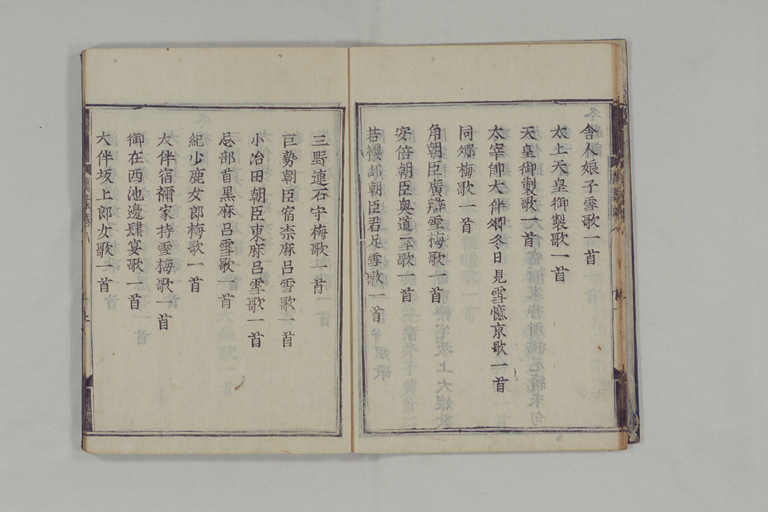 舎人娘子雪歌一首
太上天皇御製歌一首
天皇御製歌一首
太宰帥大伴卿冬日見雪憶京歌一首
同卿梅歌一首
角朝臣廣辨雪梅歌一首
安倍朝臣奥道雪歌一首
若櫻部朝臣君足雪歌一首
三野連石守梅歌一首
巨勢朝臣宿奈麻呂雪歌一首
小治田朝臣東麻呂雪歌一首
忌部首黒麻呂雪歌一首
紀少鹿女郎梅歌一首
大伴宿禰家持雪梅歌一首
御在西池邊肆宴歌一首
大伴坂上郎女歌一首